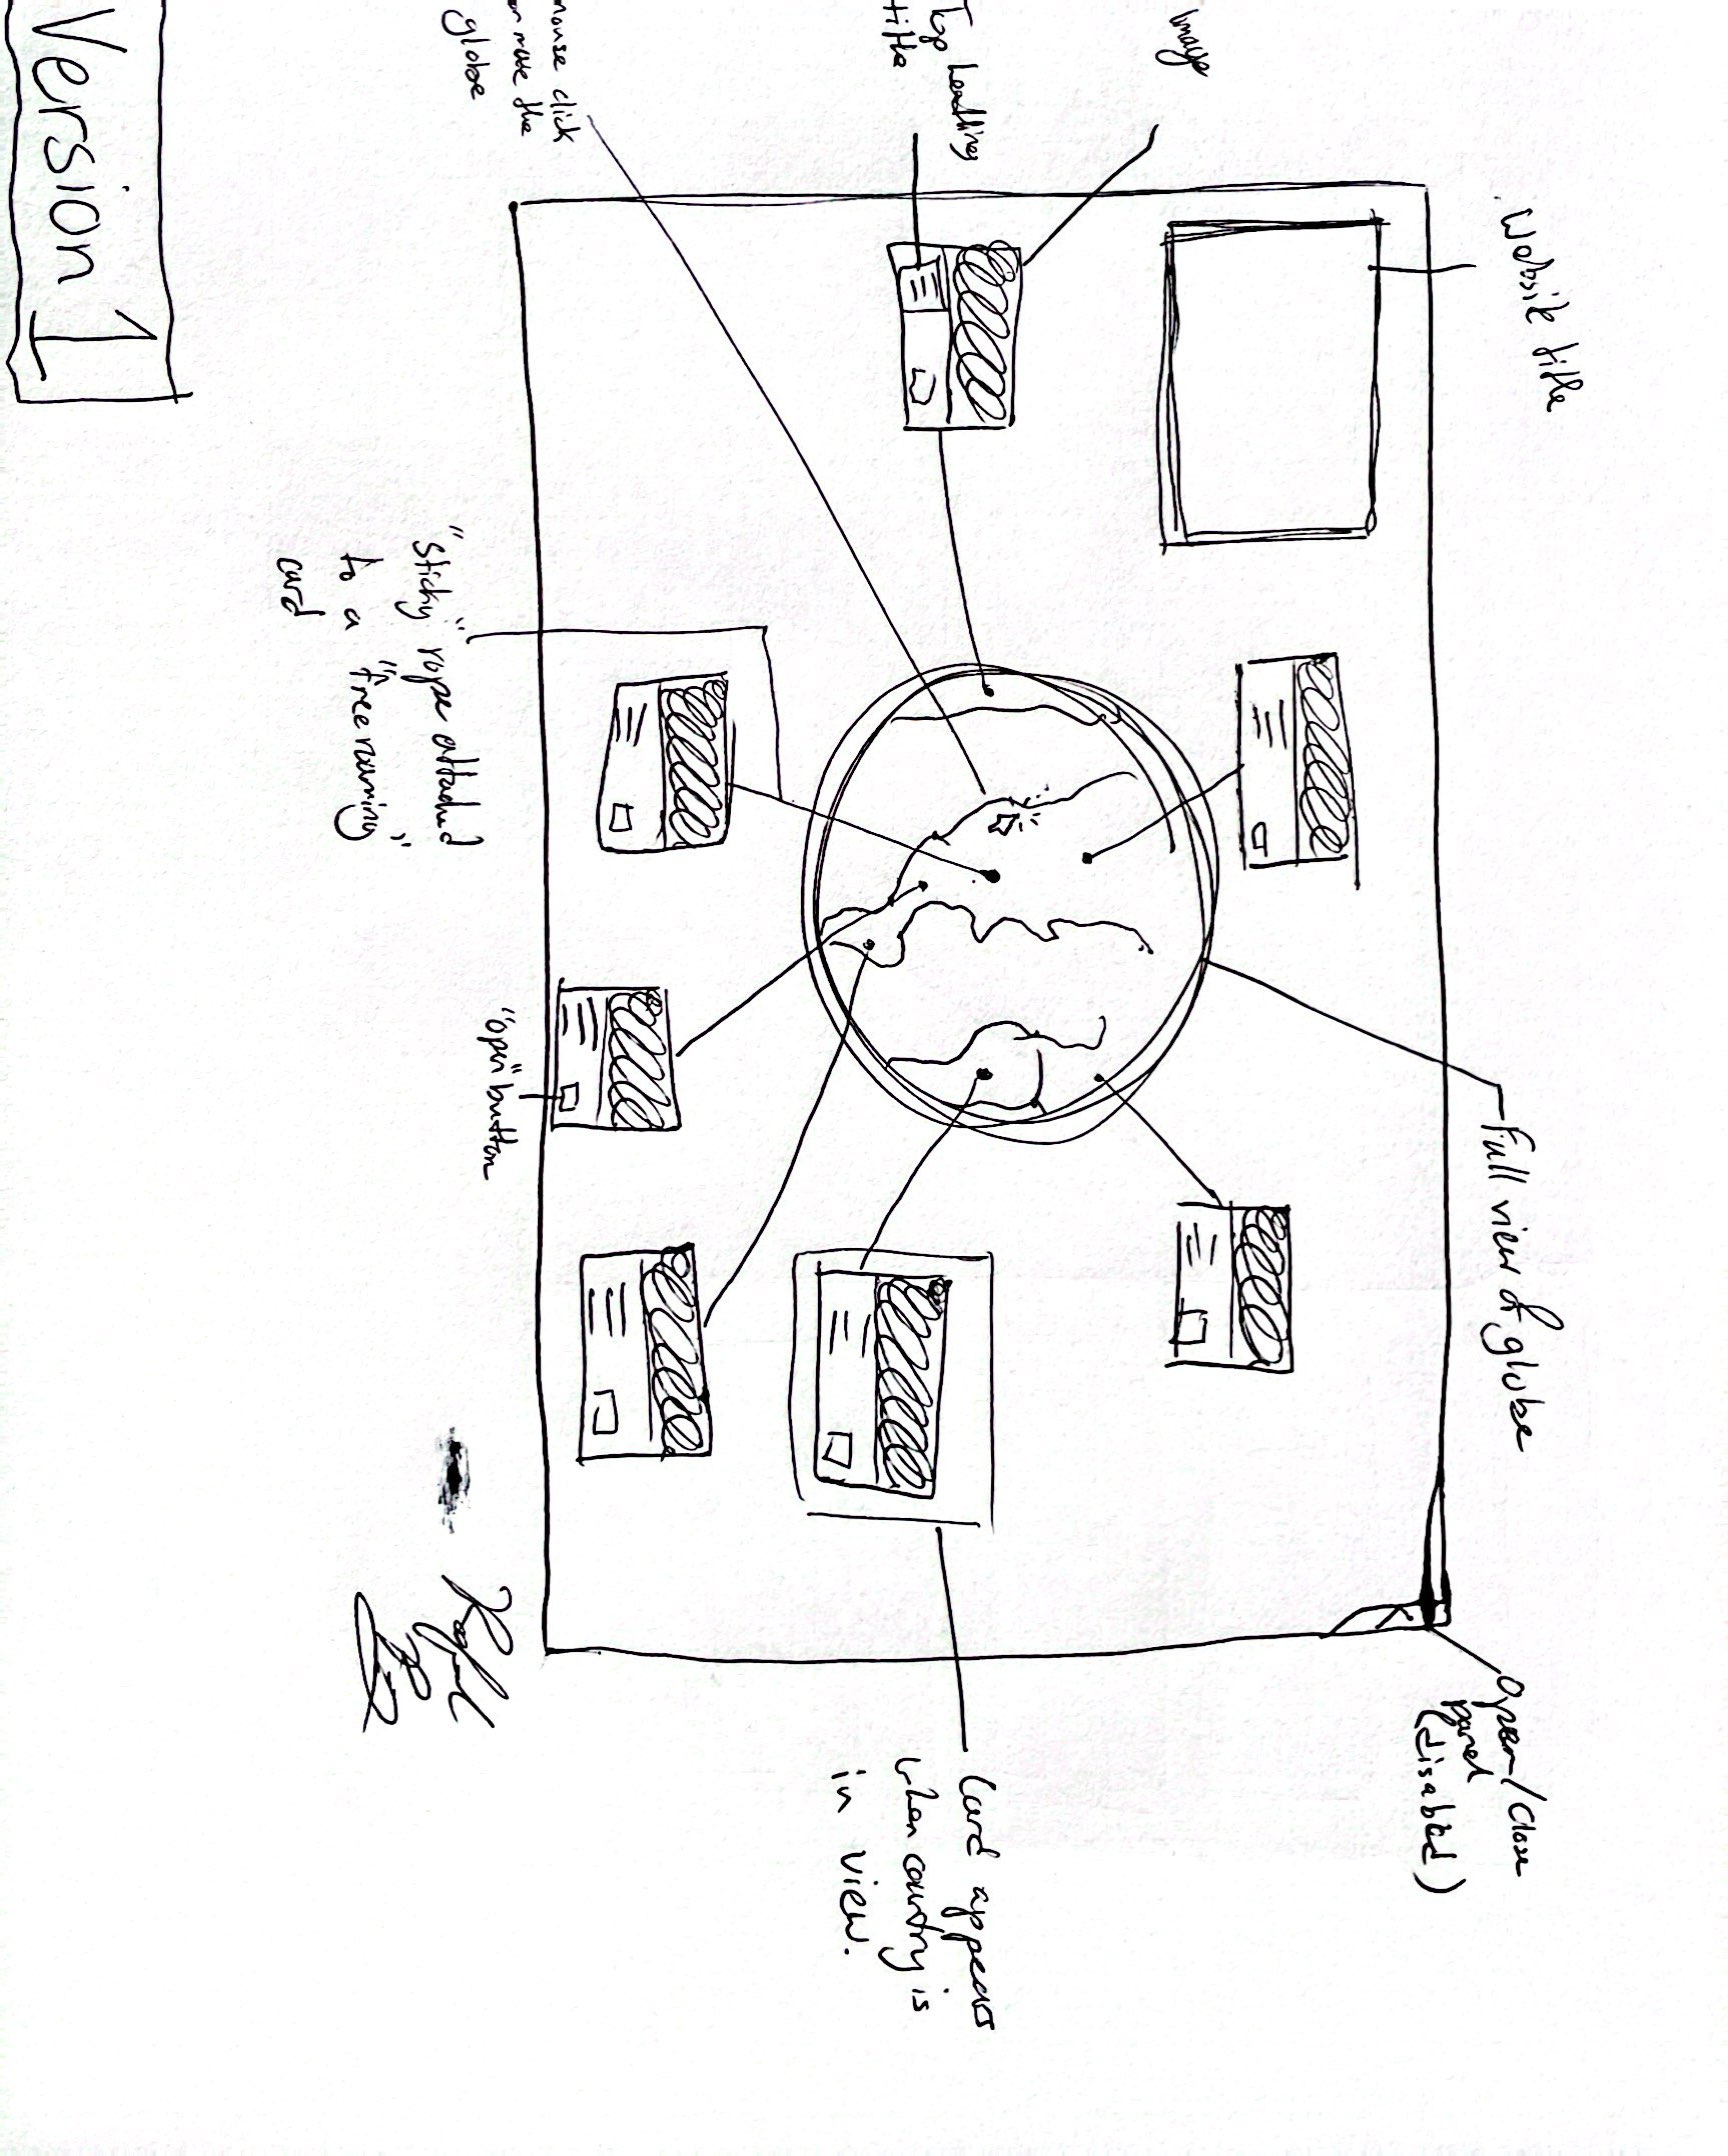 Website title
Full view of globe
Open/Close
panel
(disabled)
Image
Top headlines
title
Card appears
when country is
in view.
mouse click
or move the
globe
"open" button
"Sticky" rope attached
to a "free roaming"
card
Version 1